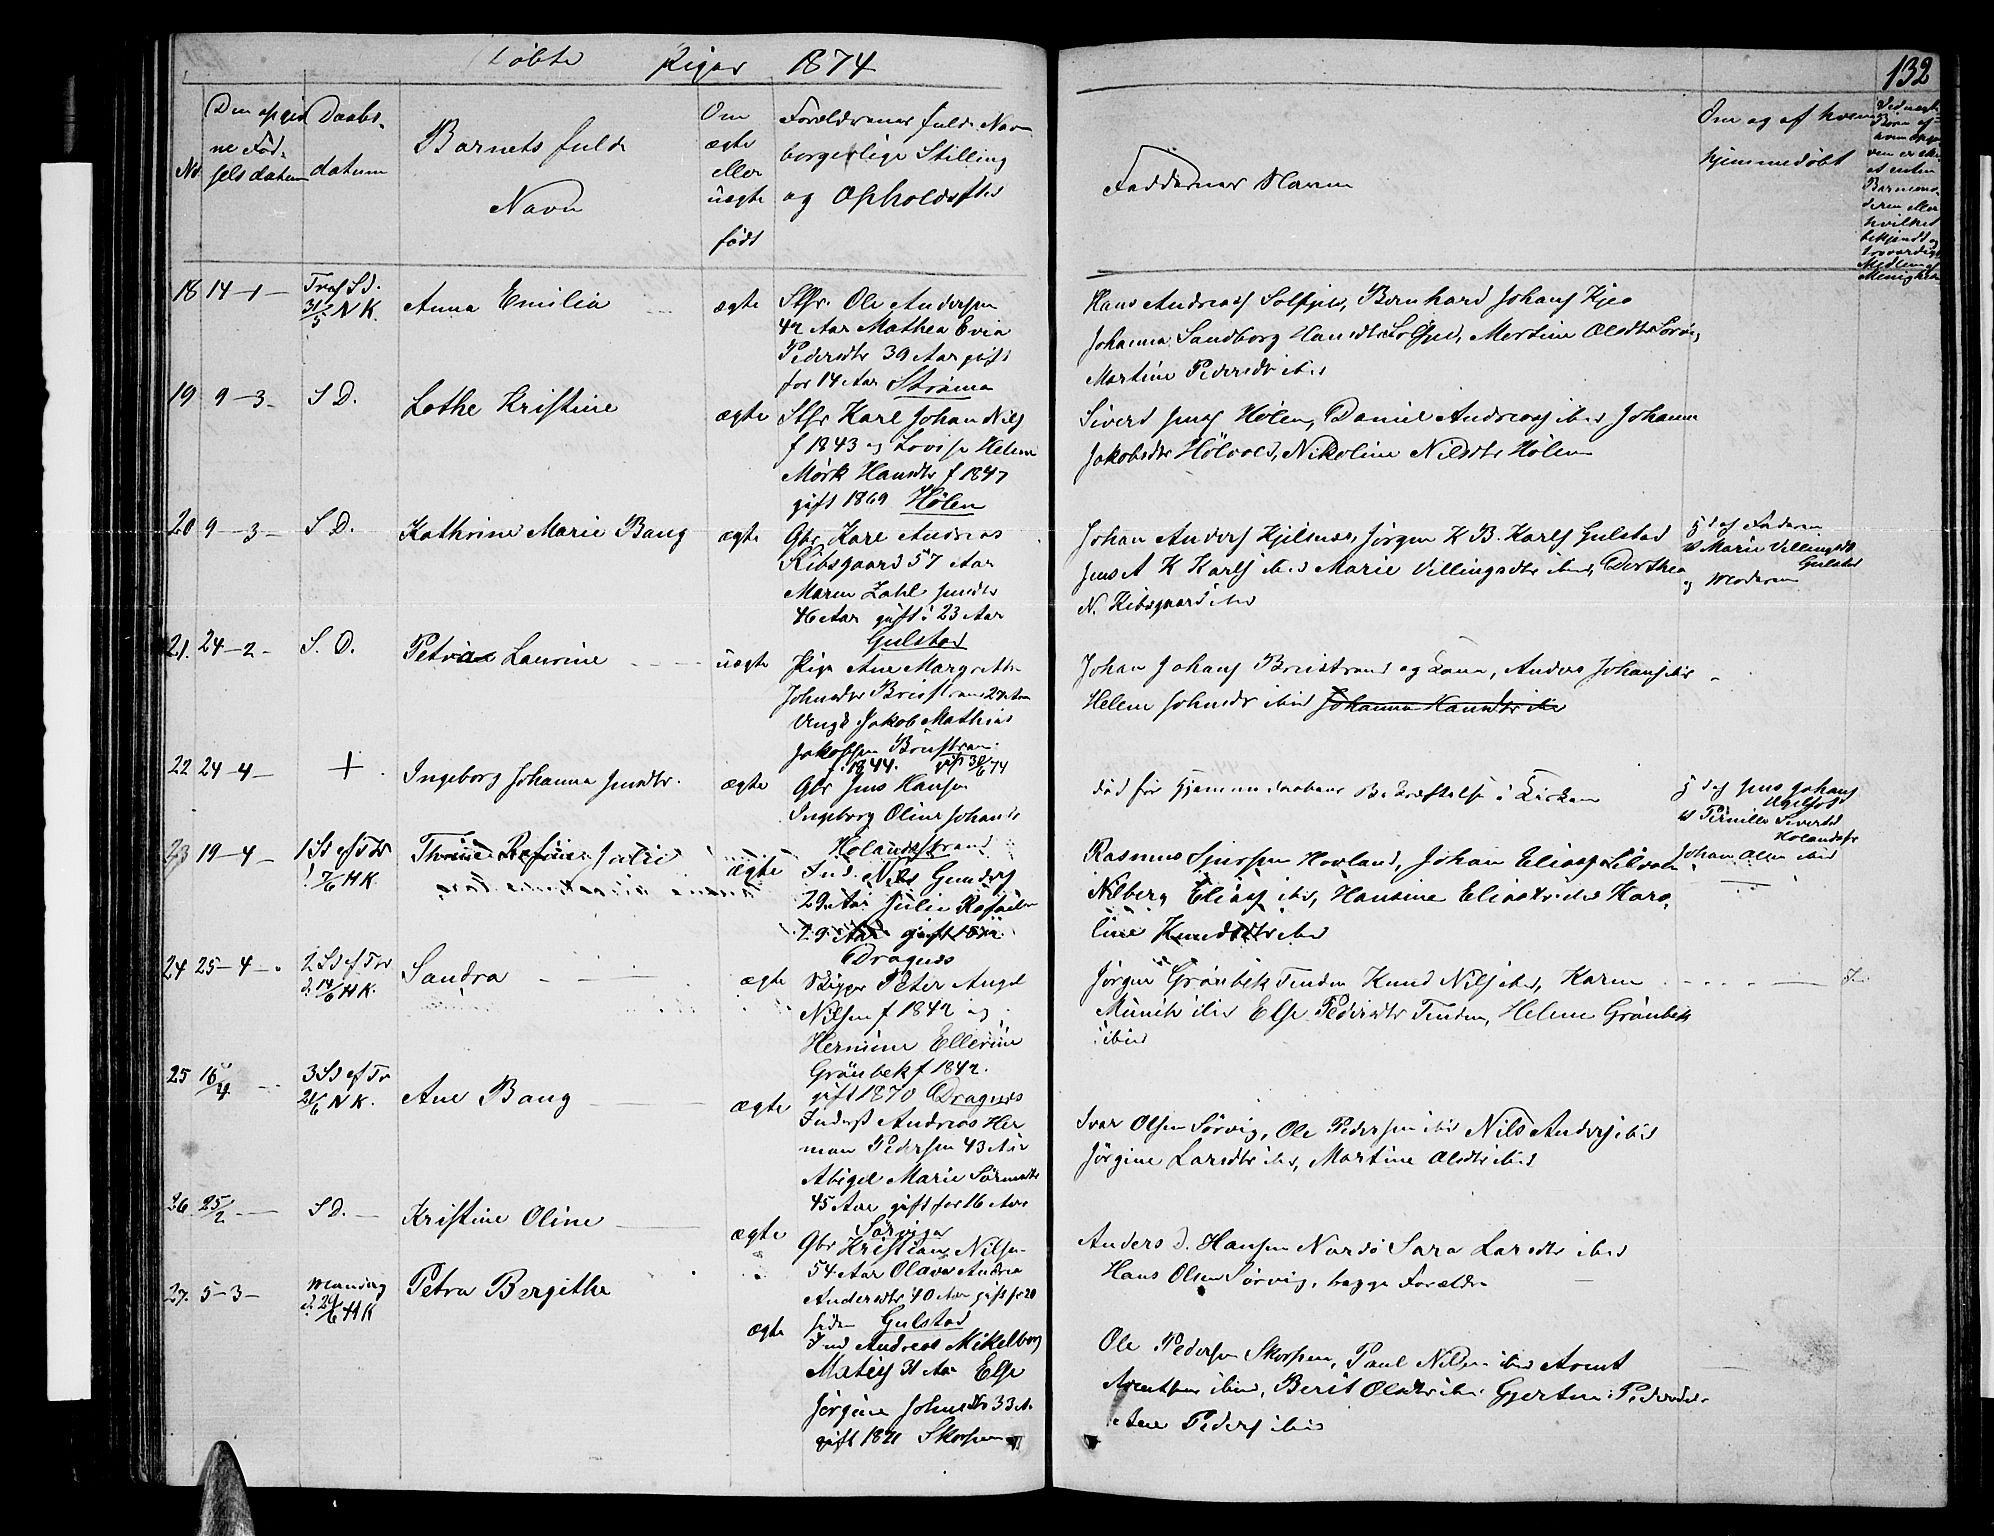 Döbte Piger 1874
132
No
Den opgiv
ne Föd-
sels datum
Daabs-
datum
Barnets fulde
Navn
Om
ægte
eller
uægte
född
Forældrenes fulde Navn
borgerlige Stilling
og Opholdssted
Faddernes Navne
Om og af hvem
hjemmedöbt
18 14-1- 31/5 N K. Anna Emilia ægte
Ole Andersen
42 Aar Mathea Evea
Pedersdtr 39 Aar gift
for 14 Aar Ströma
Hans Andreass Solfjeld, Bernhard Johans Kjeö
Johanna Sandborg Hansdtr Solfjeld, Mertine Olsdtr
Martine Pedersdtr ibid
19 9-3- S D. Lothe Kristine ægte
Karl Johan Nils
f 1843 og Lovise Helene
Mörk Hansdtr f 1847
gift 1869 Hölen
Siverd Jens Hölen, Daniel Andreass ibid Johanna
Jakobsdtr Hölvold, Nikoline Nilsdtr Hölen
20 9-3- S D. Kathrine Marie Bang ægte
Gbr. Karl Andreas
Ribsgaard 57 Aar
Maren Zahl Jensdtr
46 Aar gift i 23 Aar
Gulstad
Johan Anders Kjilsnes, Jörgen K B. Karls Gulstad
Jens A K Karls ibid Marie Villingsdtr ibid, Dorthea
N. Ribsgaard ibid
af Faderen
Marie Villingsdtr
Gulstad
og Moderen
21. 24-2- S. D. Petra Laurine uægte
Pige Ane Margrethe
Johnsdtr Breistrand 27 Aar
Ungk Jakob Mathias
Jakobsen Breistran
f. 1844. gift 30/6 74
Johan Johans Breistrand og Kona, Anders Johans ibid
Helene Johnsdtr ibid Johanna Hansdtr ibid
22 24-4- + Ingeborg Johanna Jensdtr. ægte
Gbr Jens Hansen
Ingeborg Oline Johans
Holandsstrand
död för Hjemmedaabens Bekræftelse i Kirken
Jens Johans
Pernille Siverts
Johan Olsen ibid
23 19-4- 7/6 H K. Julie ægte
Ind. Nils Gunders
29 Aar Julie Rafaels
29 Aar gift 1872
Dragnes
Rasmus Sjursen Hovland, Johan Eliass
Nilberg Eliass ibid, Hansine Eliasdtr ibid Karo-
line Knudsdtr ibid
24 25-4- 14/6 H K. Sandra ægte
Peter Angel
Nilsen f 1842 og
Hermine Ellevine
Grönbek f 1842.
gift 1870 Dragnes
Jörgen Grönbek Tinden Knud Nils ibid, Karen
Münch ibid Else Pedersdtr Tinden, Helene Grönbek
ibid
25 16/4 3 Sd ef Tr 21/6 N K. Ane Bang ægte
Inderst Andreas Her
man Pedersen 43 Aar
Abigel Marie Sörensdtr
45 Aar gift for 16 Aar
Sörvigen
Ivar Olsen Sörvig, Ole Pedersen ibid Nils Anders ibid
Jörgine Larsdtr ibid, Martine Olsdtr ibid
26 25/2 S D. Kristine Oline ægte
Gbr Kristian Nilsen
54 Aar Olava Andrea
Andersdtr 40 Aar gift for 20
siden Gulstad
Anders J. Hansen Nordö Sara Larsdtr ibid
Hans Olsen Sörvig, begge Forældre
27. 5-3- Mandag d. 24/6 H K Petra Bergithe ægte
Ind Andreas Mikelborg
Matis 31 Aar Else
Jörgine Johnsdtr 33 A.
gift 1871 Skorpen
Ole Pedersen Skorpen, Paul Nilsen ibid Arent
Arentsen ibid, Berit Olsdtr ibid Gjertine Pedersdtr
Ane Peders ibid